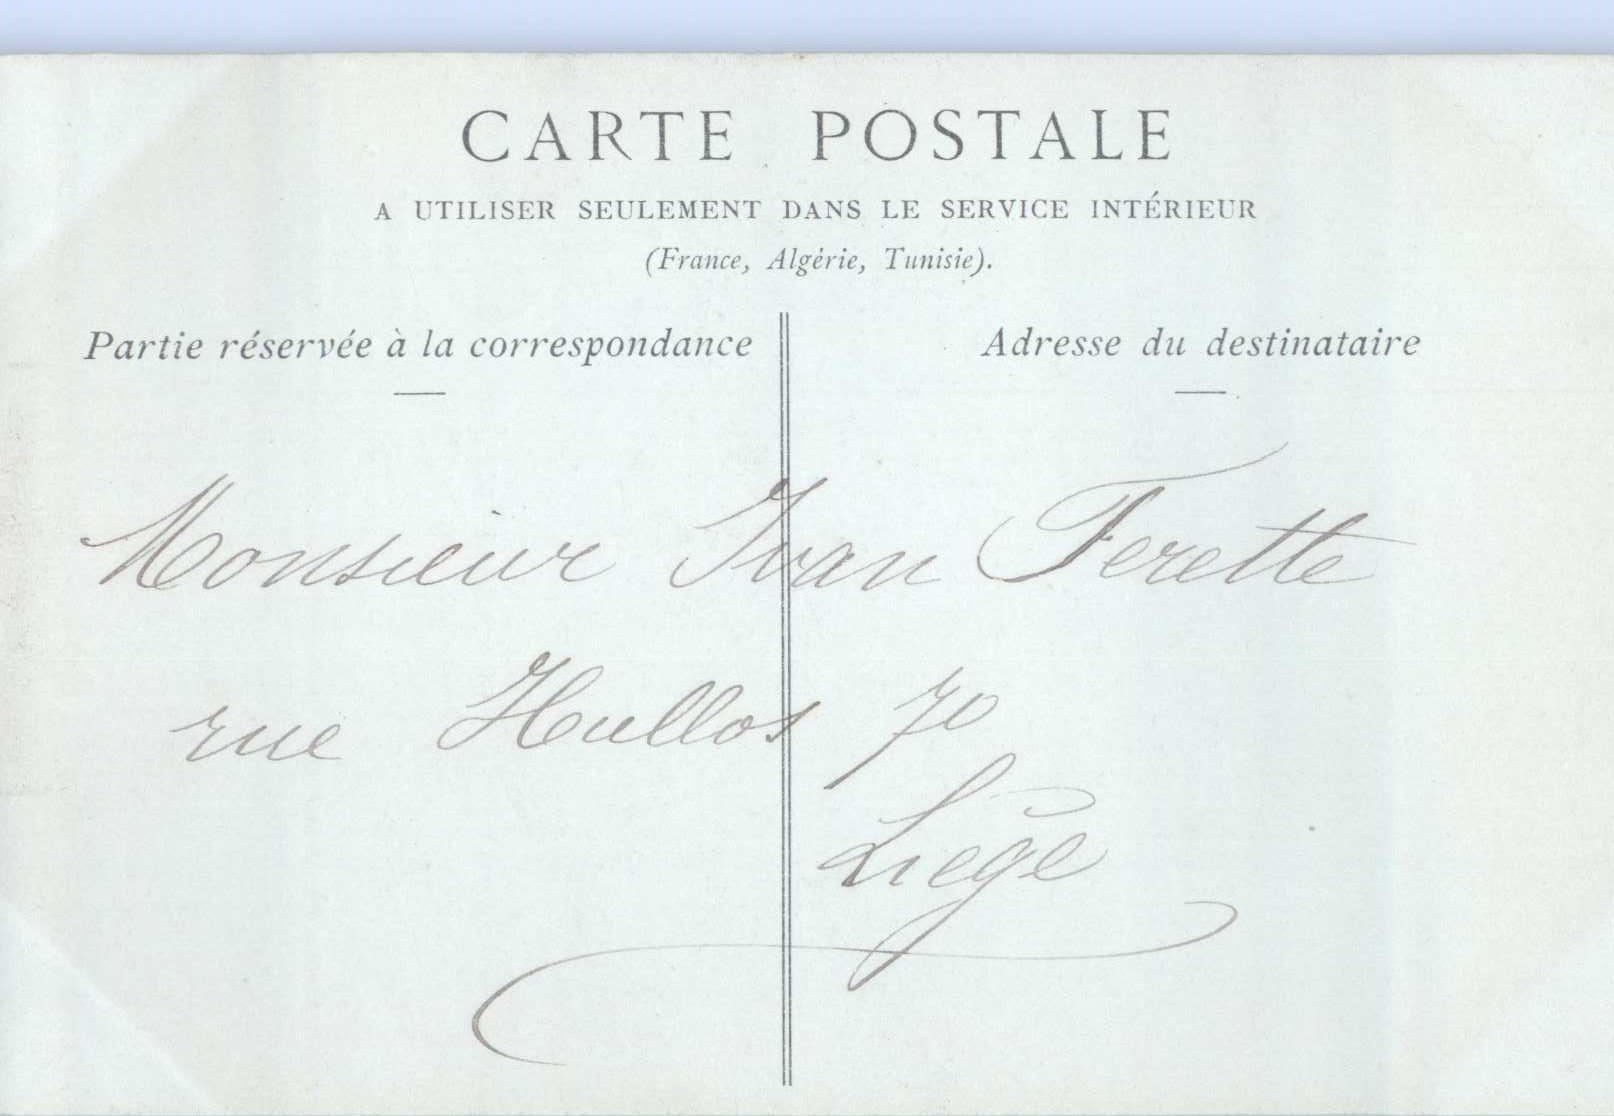 CARTE POSTALE
A UTILISER SEULEMENT DANS LE SERVICE INTÉRIEUR
(France, Algérie, Tunisie).
Partie réservée à la correspondance
Adresse du destinataire
Monsieur Ivan Ferette
rue Hullos 70
Liège